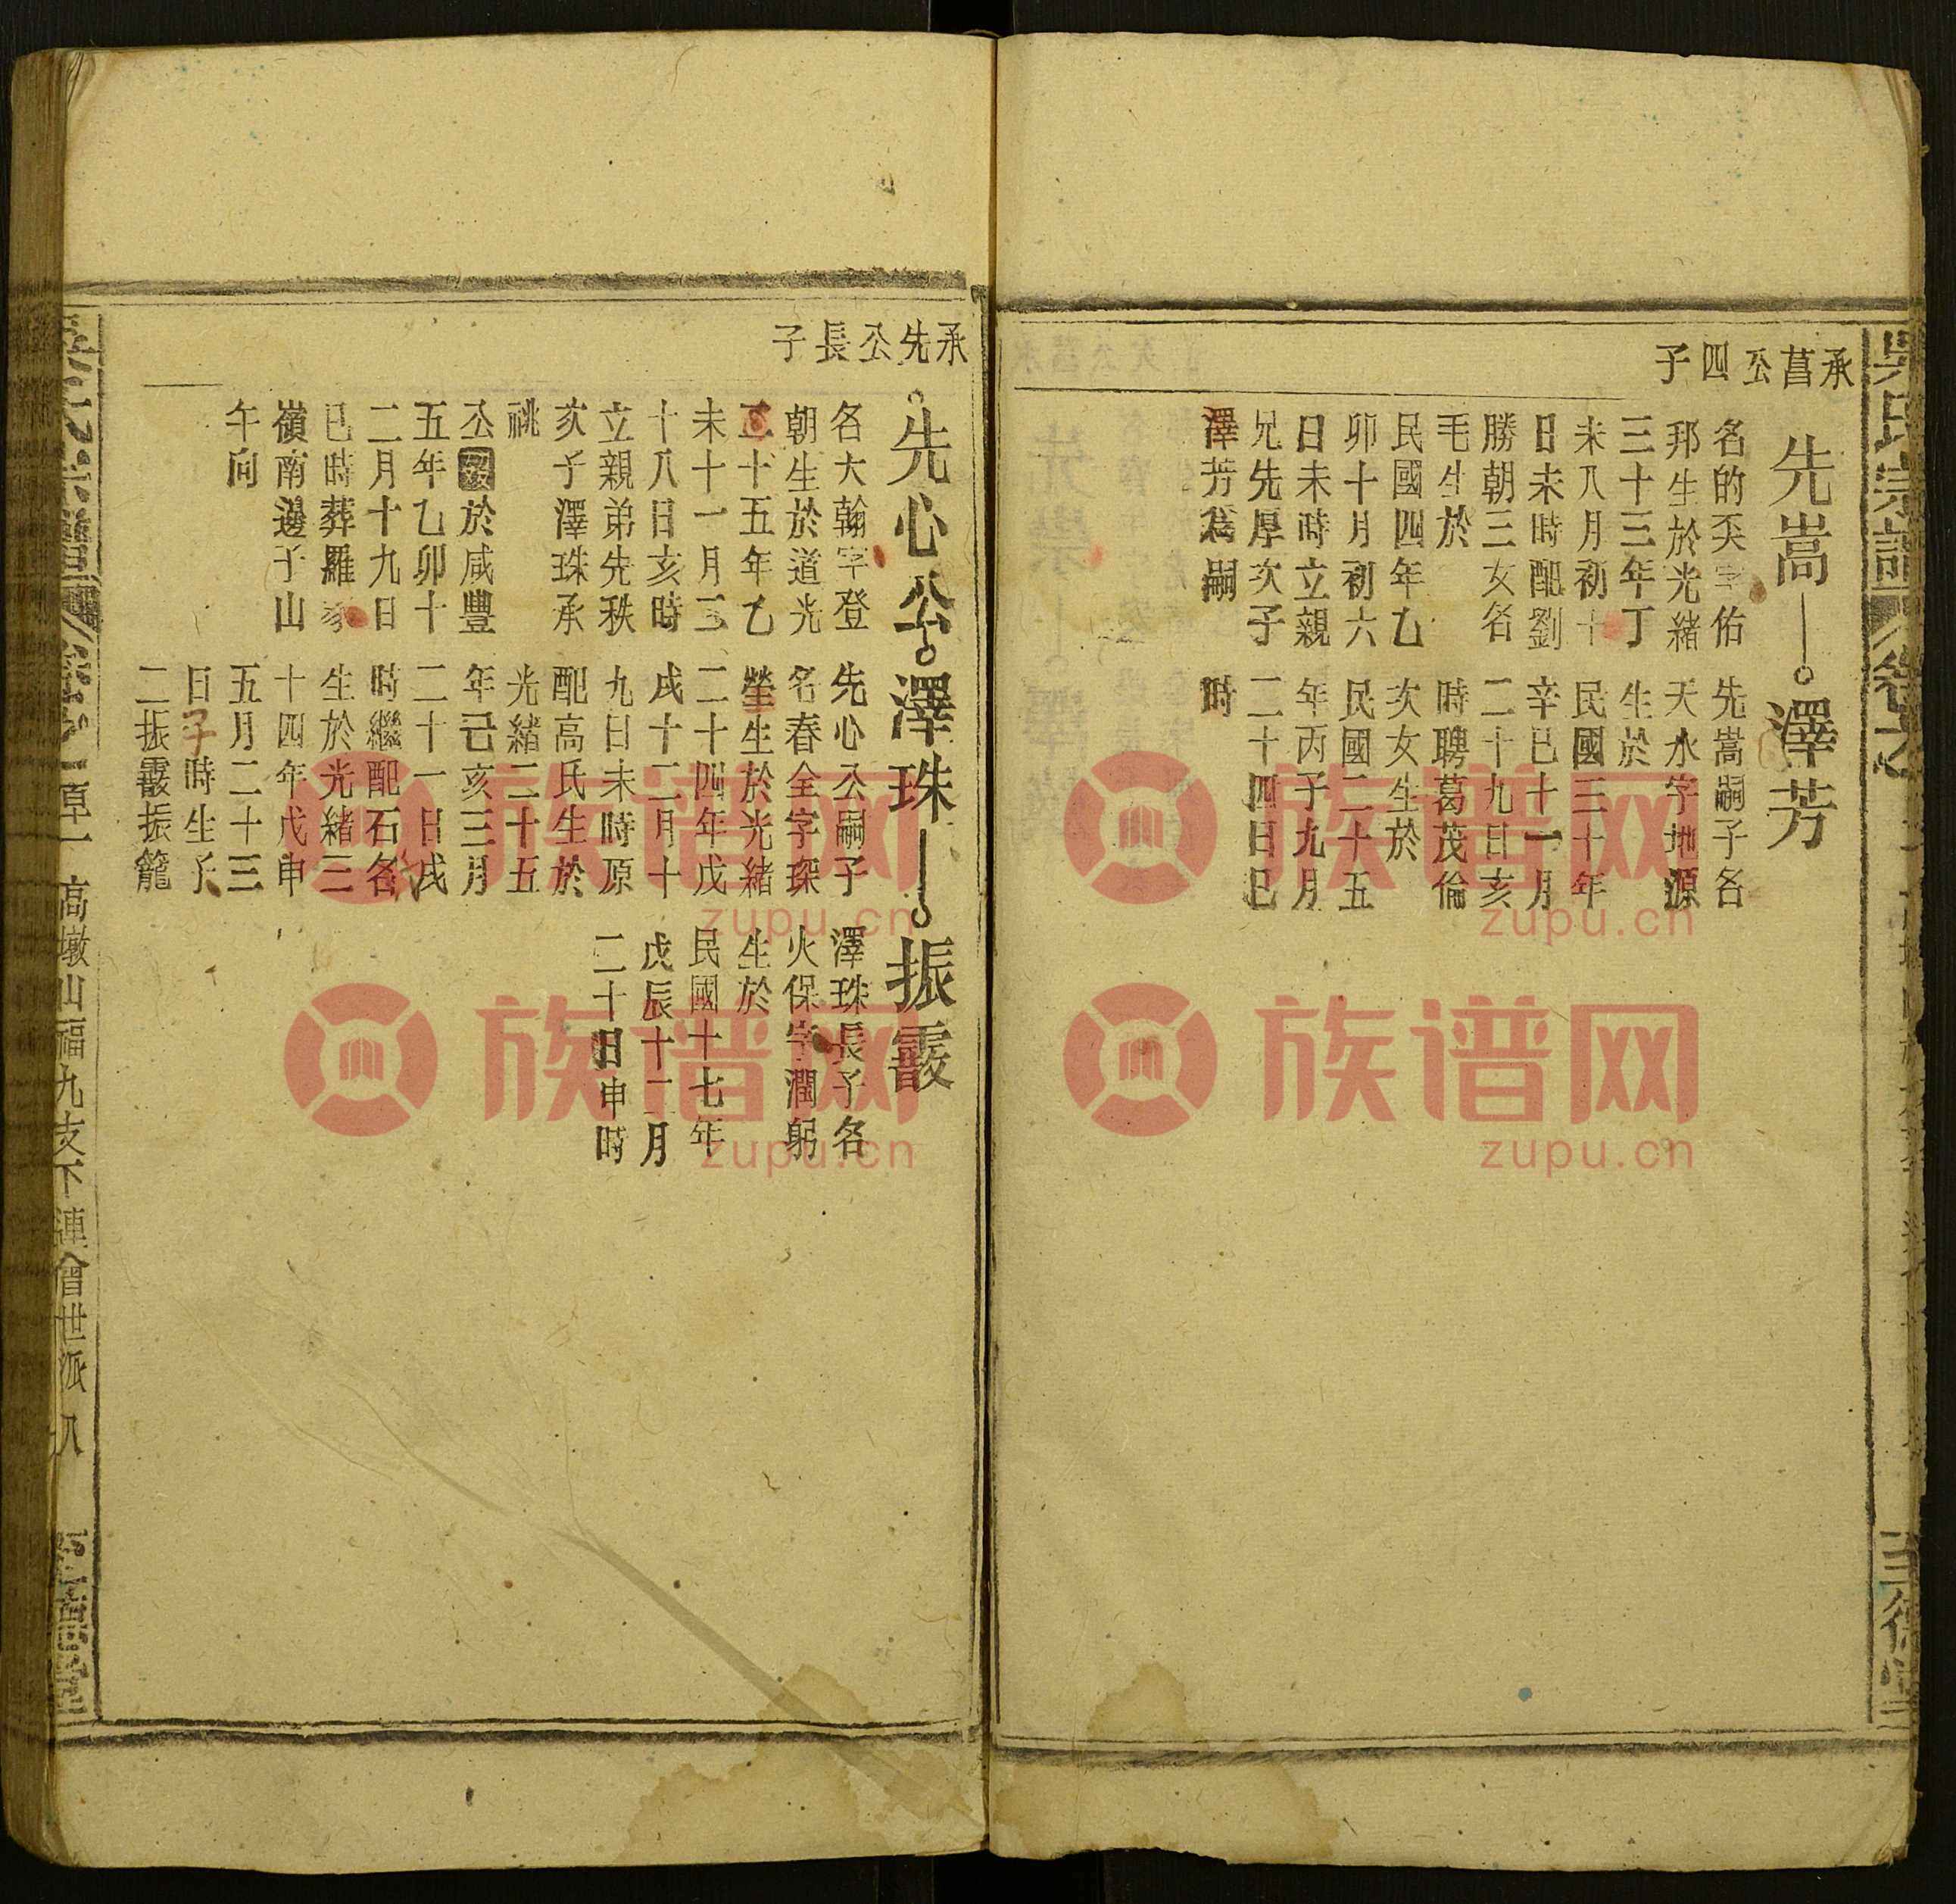 吳氏宗譜
承菖公四子
先嵩
澤芳
名的奀字佑
邦生於光緒
三十三年丁
未八月初十
日未時配劉
勝朝三女名
毛生於
民國四年乙
卯十月初六
日未時立親
兄先厚次子
澤芳為嗣
先嵩嗣子名
天水字地源
生於
民國三十年
辛巳十一月
二十九日亥
時聘葛茂倫
次女生於
民國二十五
年丙子九月
二十四日巳
時
承先公長子
先心公
澤珠
振霞
名大翰字登
朝生於道光
十五年乙
未十一月三
十八日亥時
立親弟先秩
亥子澤珠承
祧
公 於咸豐
五年乙卯十
二月十九日
巳時葬羅家
嶺南邊子山
午向
先心公嗣子
名春全字琛
瑩生於光緒
二十四年戊
戌十二月十
九日未時原
配高氏生於
光緒二十五
年己亥三月
二十一日戌
時繼配石名
生於光緒三
十四年戊申
五月二十三
日子時生子
二振霞振籠
澤珠長子名
火保字潤躬
生於
民國十七年
戊辰十二月
二十日申時
高墩山福九支下連會世派 八
族谱网
zupu.cn
族谱网
zupu.cn
族谱网
zupu.cn
族谱网
zupu.cn